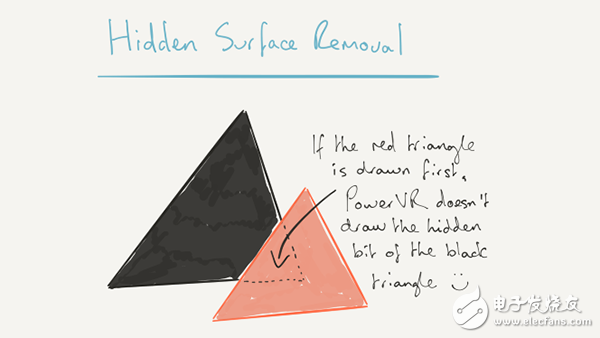 Hidden Surface Removal
If the red triangle
is drawn first,
PowerVR doesn't
draw the hidden
bit of the black
triangle
电子发烧友
www.elecfans.com